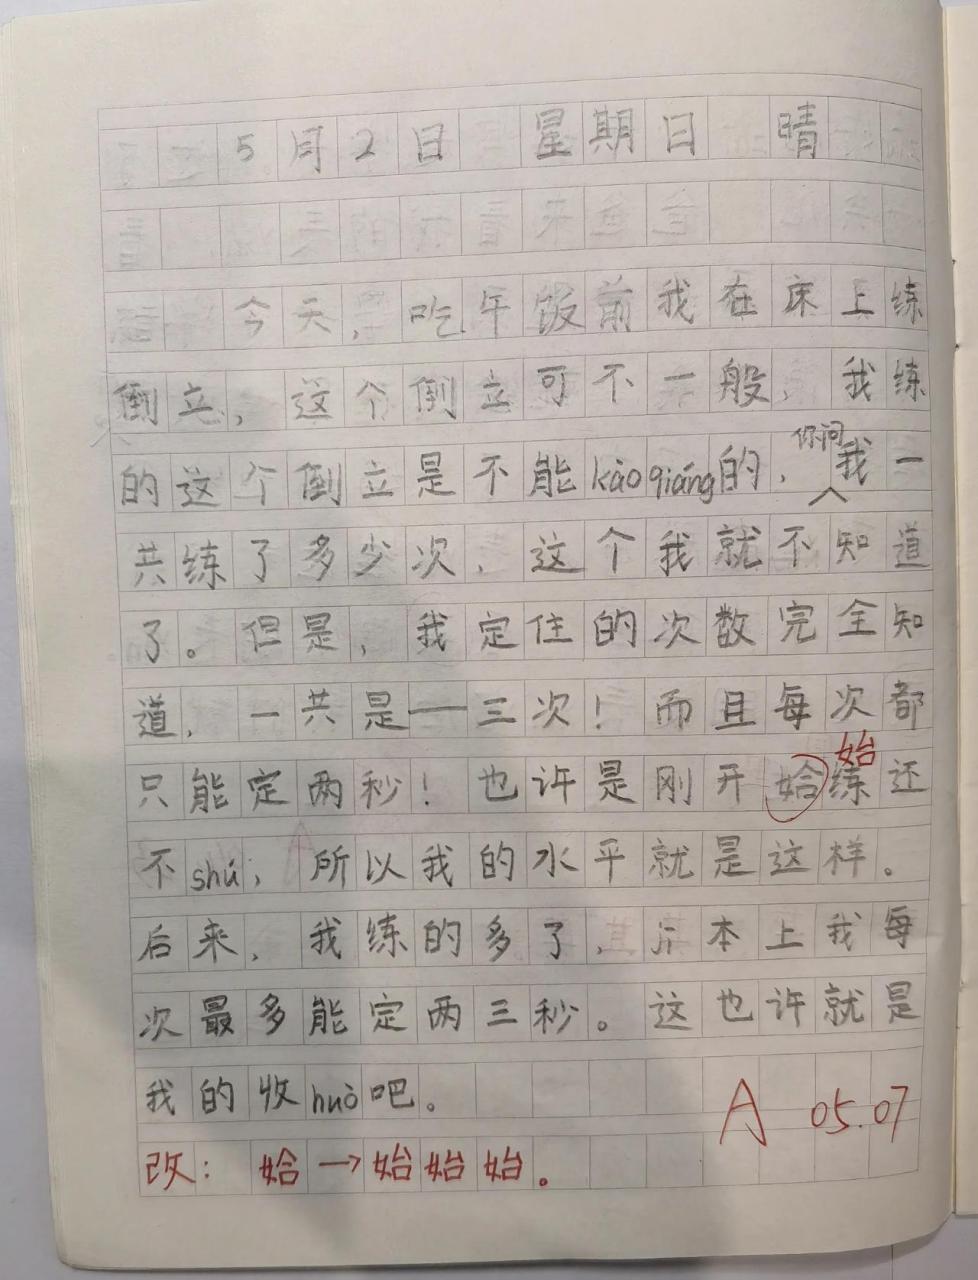 5月2日 星期日 晴
今天,吃午饭前我在床上练
倒立,这个倒立可不一般,我练
的这个倒立是不能kàoqiáng的,你问我一
共练了多少次,这个我就不知道
了。但是,我定住的次数完全知
道,一共是——三次!而且每次都
始
只能定两秒!也许是刚开姶练还
不shú,所以我的水平就是这样。
后来,我练的多了,本上我每
次最多能定两三秒。这也许就是
我的收huò吧。
A 05.07
改:姶→始始始。